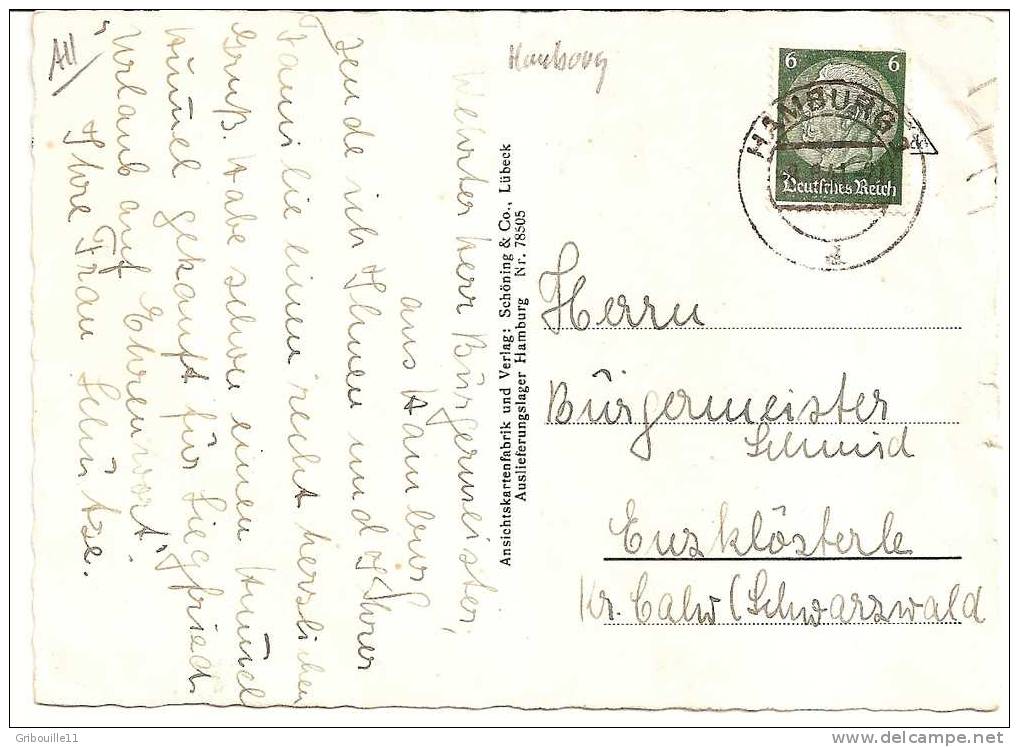 All
Hambourg
Werter Herr Bürgermeister,
aus Hamburg
sende ich Ihnen und Ihrer
Familie einen recht herzlichen
Gruß. Habe schon einen Hummel
Hummel gekauft für Siegfried.
"Urlaub auf Ehrenwort".
Ihre Frau Schütze.
Ansichtskartenfabrik und Verlag: Schöning & Co., Lübeck
Auslieferungslager Hamburg Nr. 78505
6 6
Deutsches Reich
HAMBURG
Herrn
Bürgermeister
Schmid
Enzklösterle
Kr. Calw (Schwarzwald
Gribouille11
delcampe.net